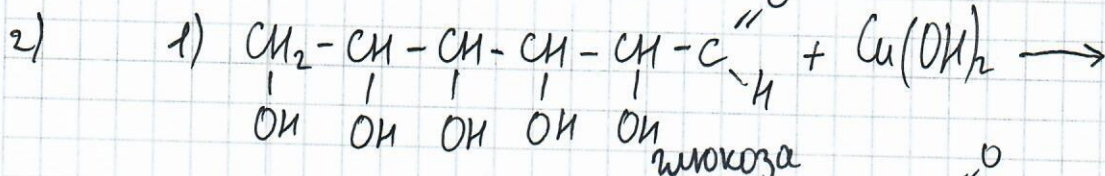 2) 1) CH₂ - CH - CH - CH - CH - C =O H + Cu(OH)₂ ⟶
OH OH OH OH OH
глюкоза
O